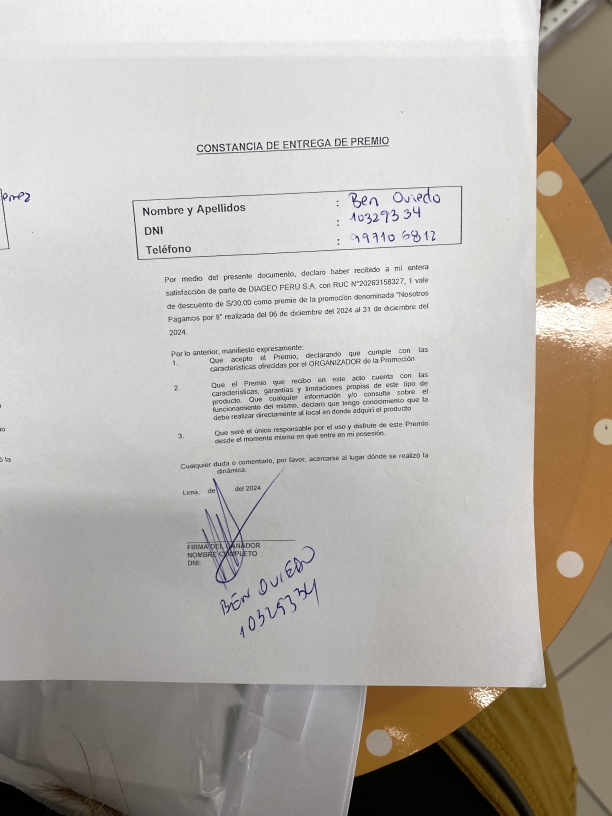 CONSTANCIA DE ENTREGA DE PREMIO
Nombre y Apellidos : Ben Oviedo
DNI : 10329334
Teléfono :
Por medio del presente documento, declaro haber recibido a mi entera
satisfacción de parte de DIAGEO PERÚ S.A. con RUC N°20263158327, 1 vale
de descuento de S/30.00 como premio de la promoción denominada "Nosotros
Pagamos por 8" realizada del 06 de diciembre del 2024 al 31 de diciembre del
2024.
Por lo anterior, manifiesto expresamente:
1. Que acepto el Premio, declarando que cumple con las
características ofrecidas por el ORGANIZADOR de la Promoción
2. Que el Premio que recibo en este acto cuenta con las
características, garantías y limitaciones propias de este tipo de
producto. Que cualquier información y/o consulta sobre el
funcionamiento del mismo, declaro que tengo conocimiento que la
debo realizar directamente al local en donde adquirí el producto
3. Que seré el único responsable por el uso y disfrute de este Premio
desde el momento mismo en que entre en mi posesión.
Cualquier duda o comentario, por favor, acercarse al lugar dónde se realizó la
dinámica.
Lima, de del 2024
FIRMA DEL GANADOR
NOMBRE COMPLETO
DNI:
BEN OVIEDO
10329334